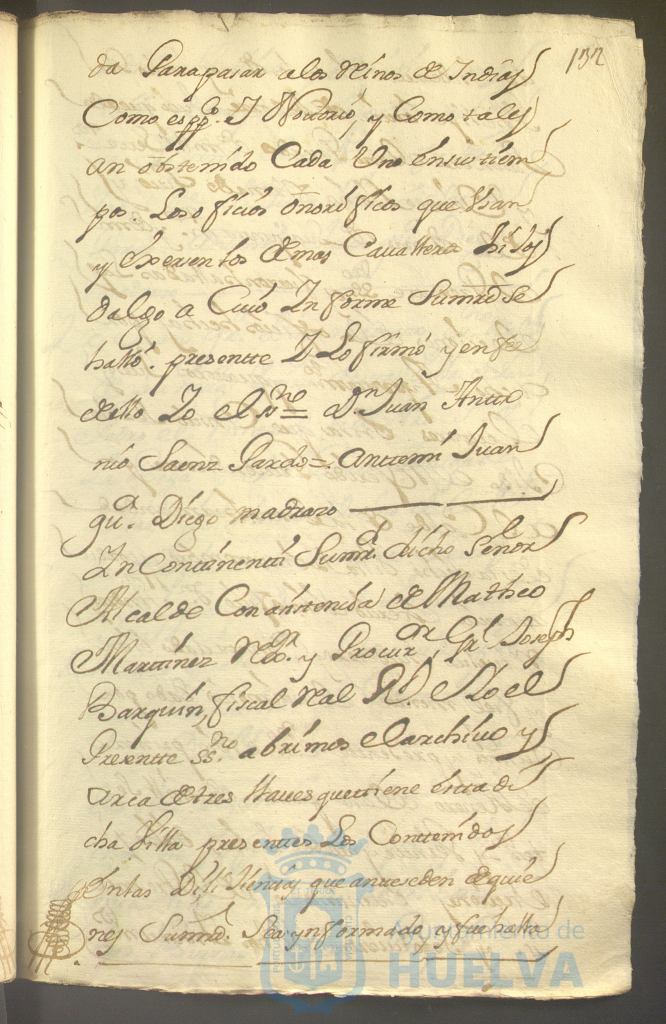 132
da Parapasar alos Reinos de Indias
Como espp.º I Notorio, y Como tales
an obstenido Cada Uno ensus tiem
pos. Los oficios onorificos que Usan
y exersen los demas Cavallera hijos
dalgo a Cuio Informe Sumrd se
hallo. presentte I Lo firmo y en fee
dello Io el ss.no = D.n Juan Anto
nio Saenz Pardo =. Anttemi Juan
gu.a Diego madrazo
In Continenti Sumrd dicho Señor
Alcalde Con asistencia de Matheo
Martinez Rex.or y Procur.or Gr.l Joseph
Barquin, fiscal Real Io el
Presentte ss.no abrimos el archivo y
arca de tres llaves que ttiene estta di
cha Villa presentes Los Conttenidos
en las Dilixencias que antteseden de quie
nes Sumrd. Sea ynformado y fue halla
Ayuntamiento de
HUELVA